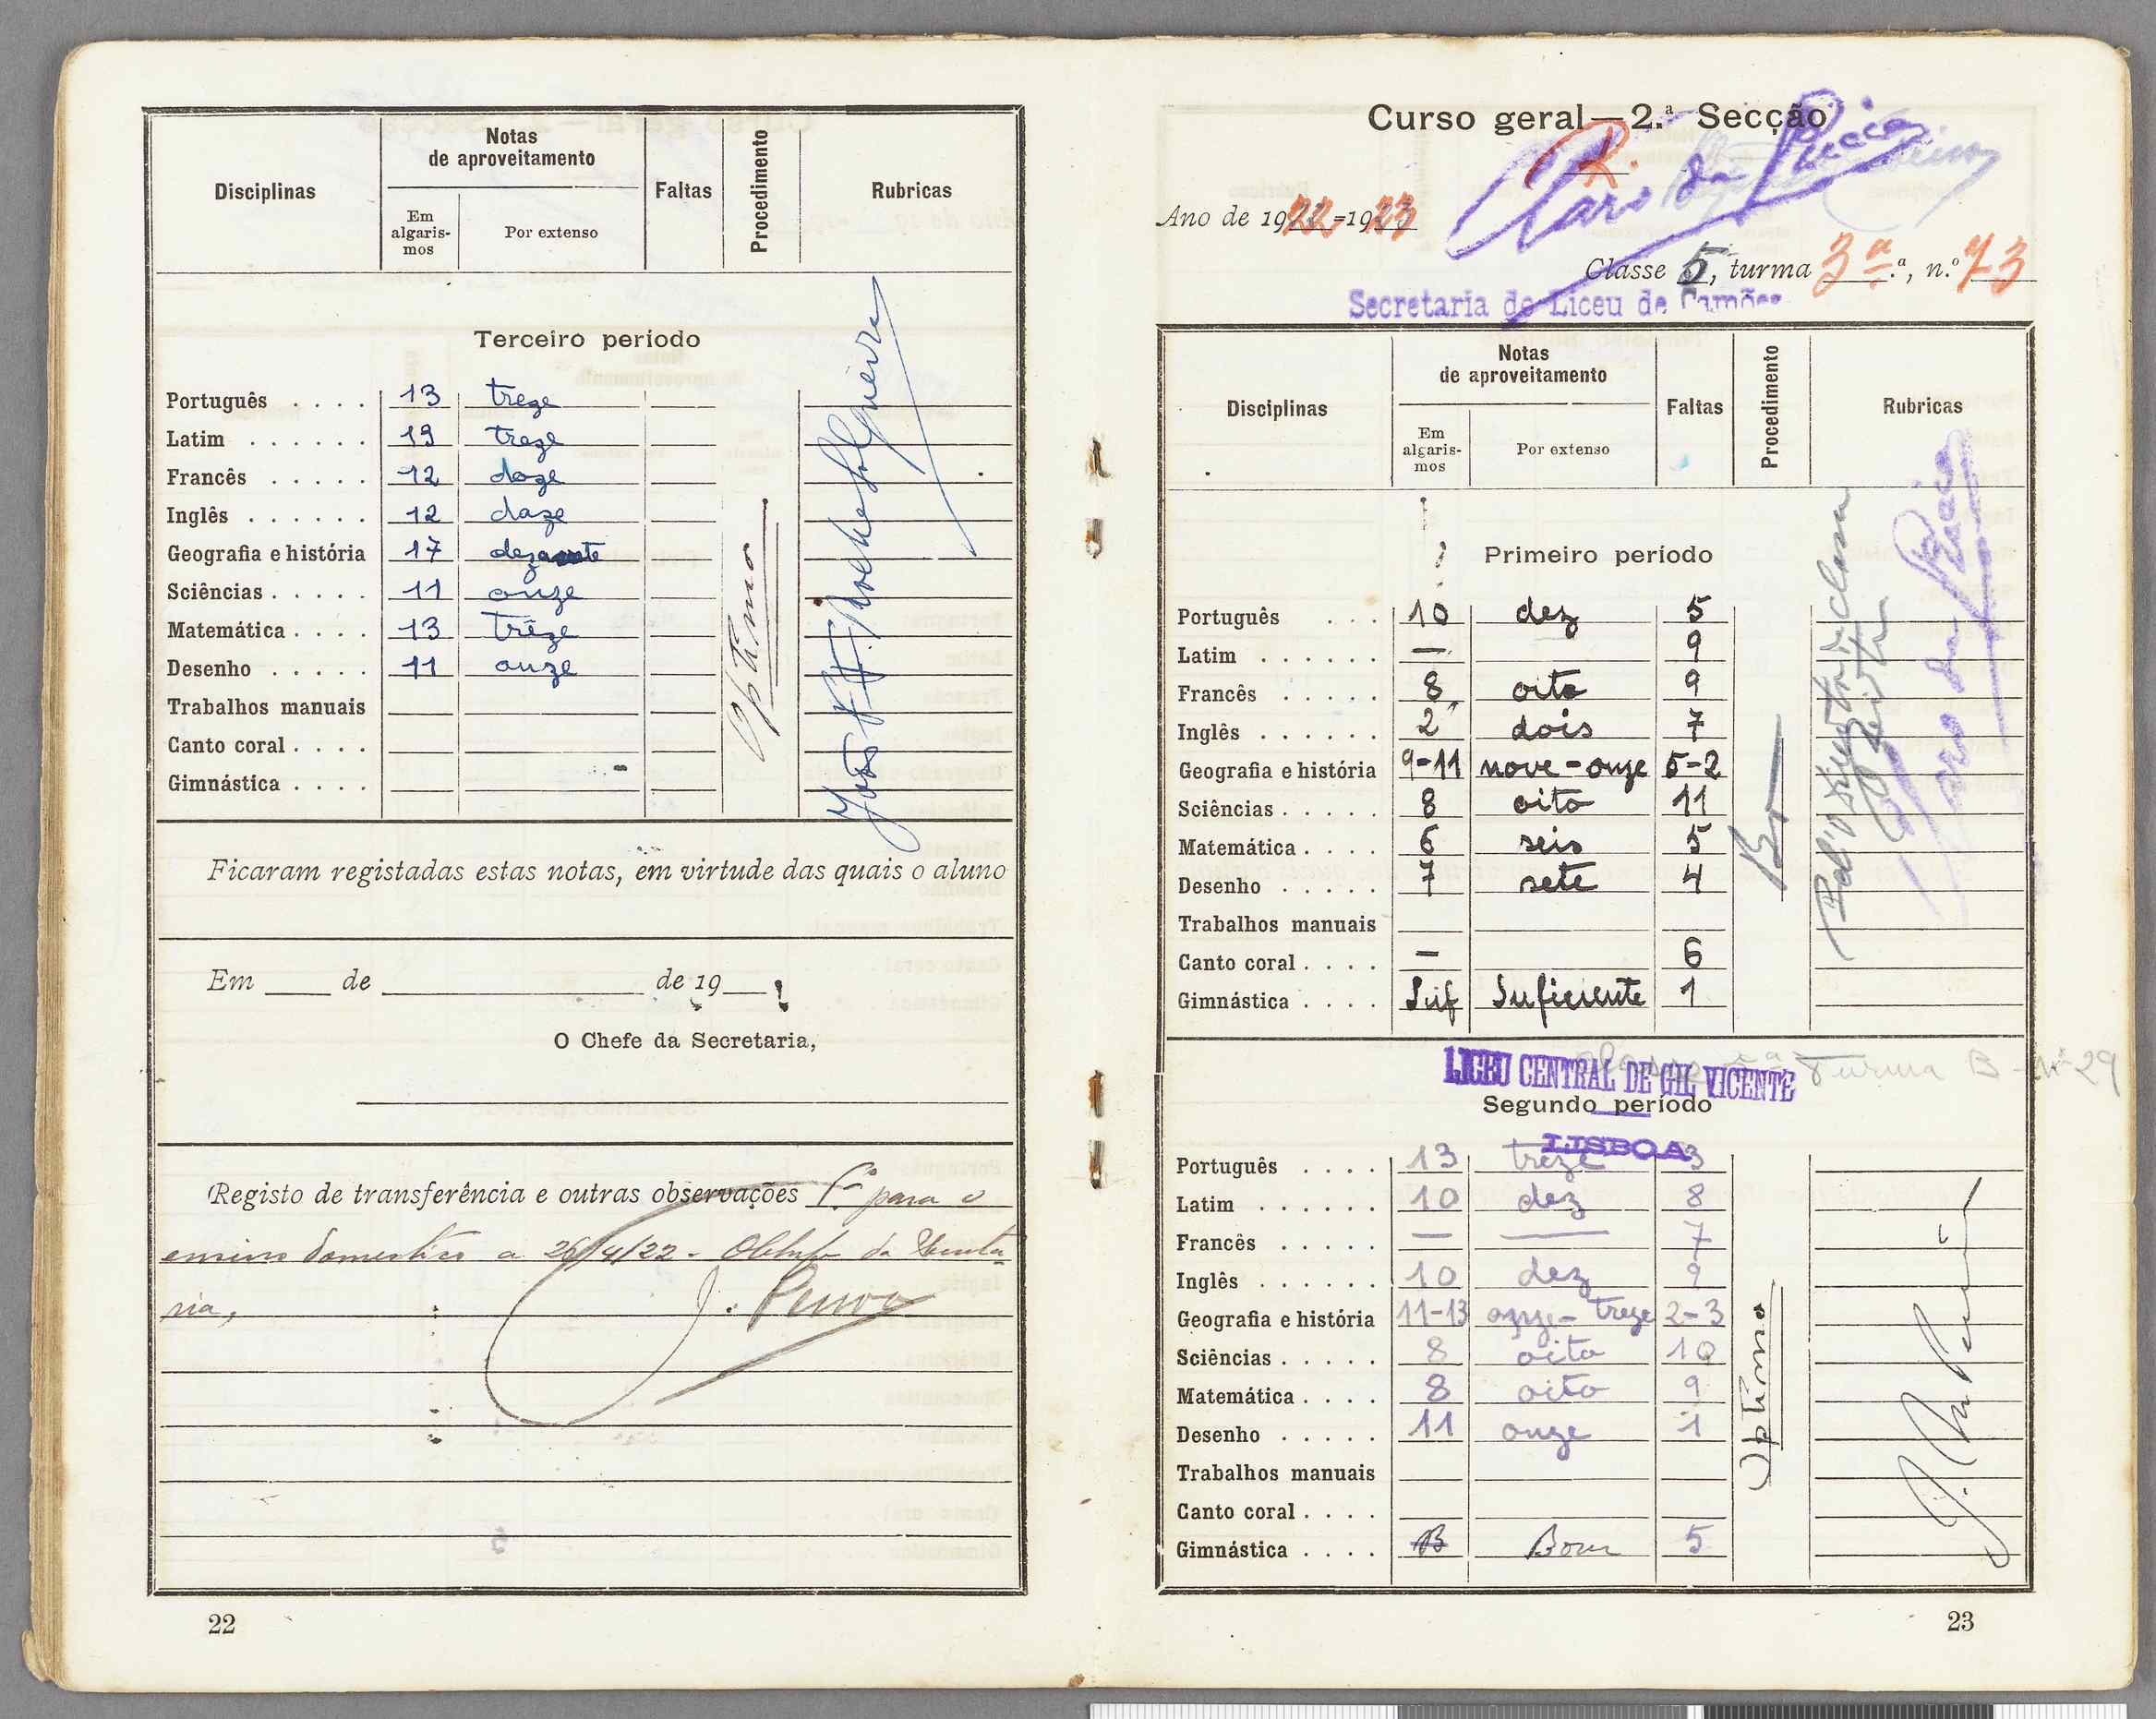 Disciplinas Notas de aproveitamento Faltas Procedimento Rubricas
Em algaris-mos Por extenso
Terceiro período
Português . . . . 13 treze
Latim . . . . . . 13 treze
Francês . . . . . 12 doze
Inglês . . . . . . 12 doze
Geografia e história 17
Sciências . . . . . 11 onze
Matemática . . . . 13 trêze
Desenho . . . . . 11 onze
Trabalhos manuais
Canto coral . . . .
Gimnástica . . . .
Optimo
Ficaram registadas estas notas, em virtude das quais o aluno
Em ____ de ____ de 19__
O Chefe da Secretaria,
Registo de transferência e outras observações para o
ensino domestico a 26/4/22 -
ria,
22
Curso geral—2.ª Secção
R.
Ano de 1922=1923
Classe 5, turma 3ª.ª, n.º 73
Secretaria do Liceu de Camões
Disciplinas Notas de aproveitamento Faltas Procedimento Rubricas
Em algaris-mos Por extenso
Primeiro período
Português . . . 10 dez 5
Latim . . . . . . — 9
Francês . . . . . 8 oito 9
Inglês . . . . . . 2 dois 7
Geografia e história 9-11 nove-onze 5-2
Sciências . . . . . 8 oito 11
Matemática . . . . 6 seis 5
Desenho . . . . . 7 sete 4
Trabalhos manuais
Canto coral . . . . — 6
Gimnástica . . . . Suf Suficiente 1
Turma B - Nº 29
LICEU CENTRAL DE GIL VICENTE
Segundo período
LISBOA
Português . . . . 13 treze 3
Latim . . . . . . 10 dez 8
Francês . . . . . — — 7
Inglês . . . . . . 10 dez 9
Geografia e história 11-13 onze-treze 2-3
Sciências . . . . . 8 oito 10
Matemática . . . . 8 oito 9
Desenho . . . . . 11 onze 1
Trabalhos manuais
Canto coral . . . .
Gimnástica . . . . B Bom 5
Optimo
23